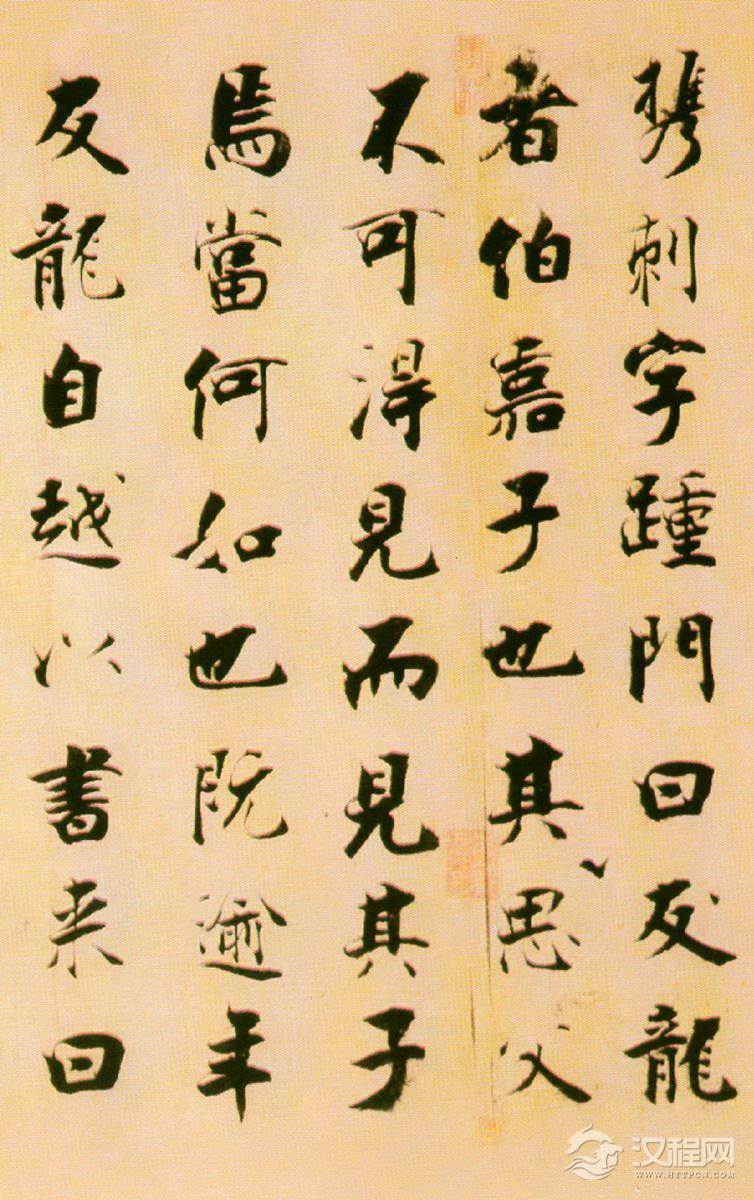 携刺字踵门曰友龍
者伯嘉子也其思父
不可得見而見其子
焉當何如也既逾年
友龍自越以書来曰
汉程网
WWW.HTTPCN.COM